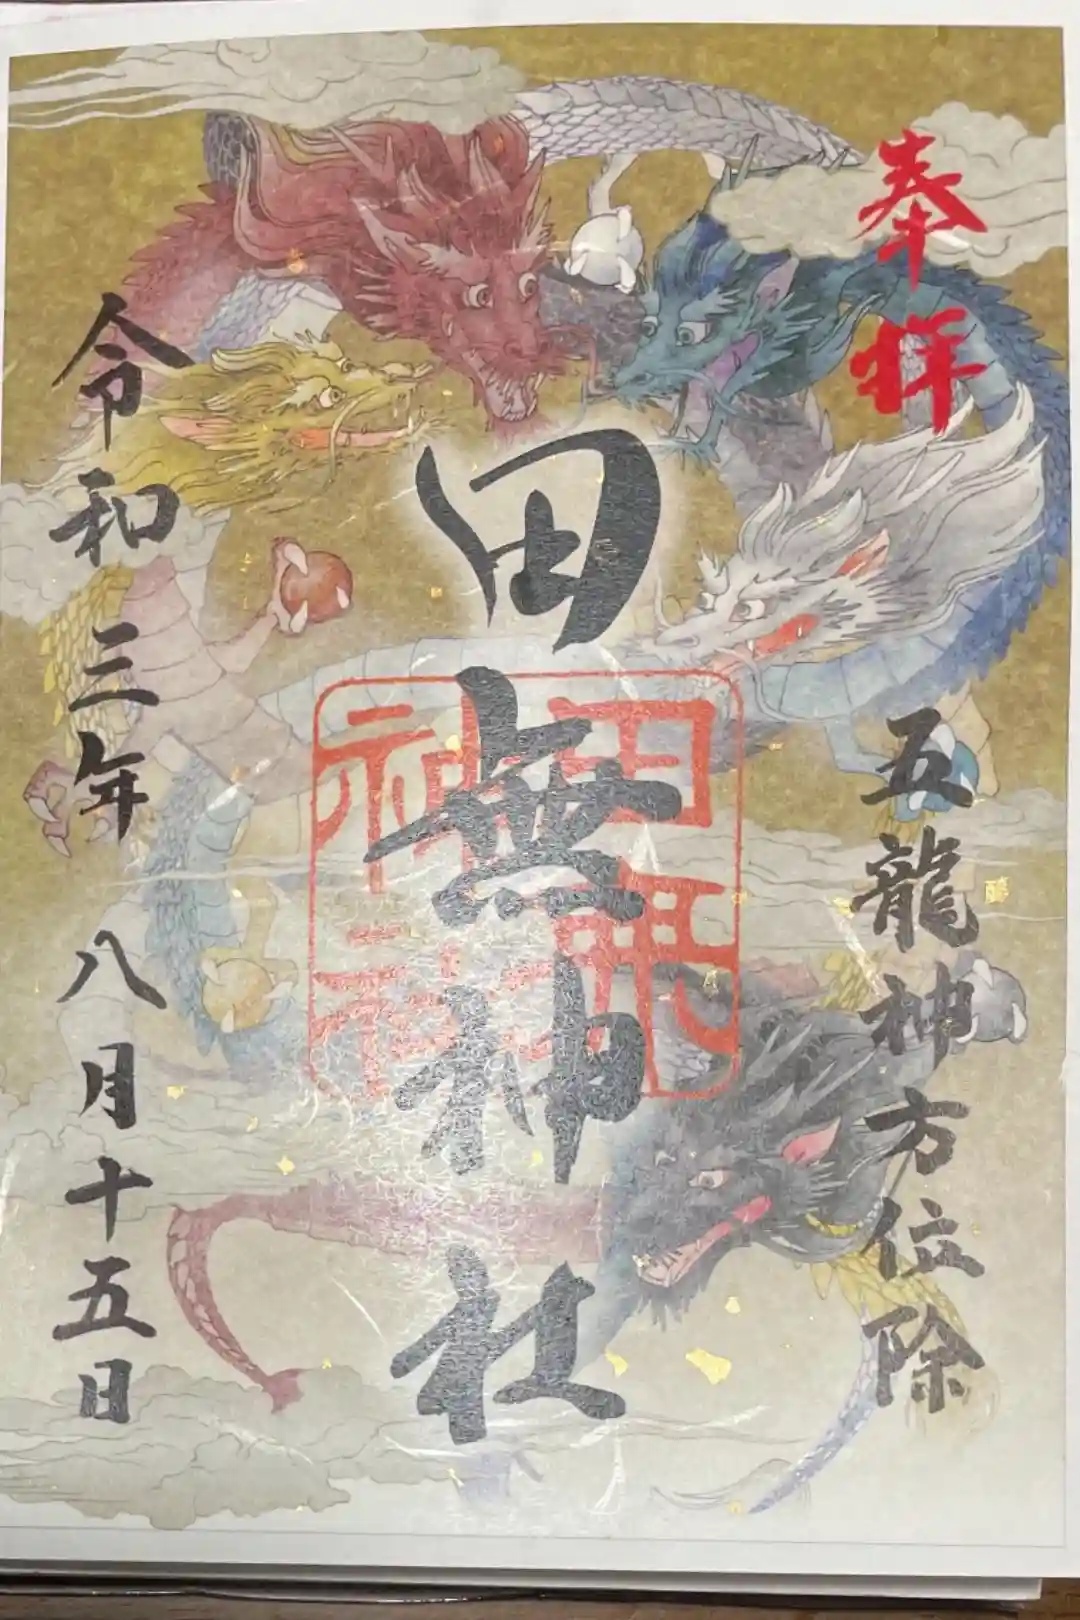 奉拝
五龍神方位除
田無神社
田無神社
令和三年八月十五日